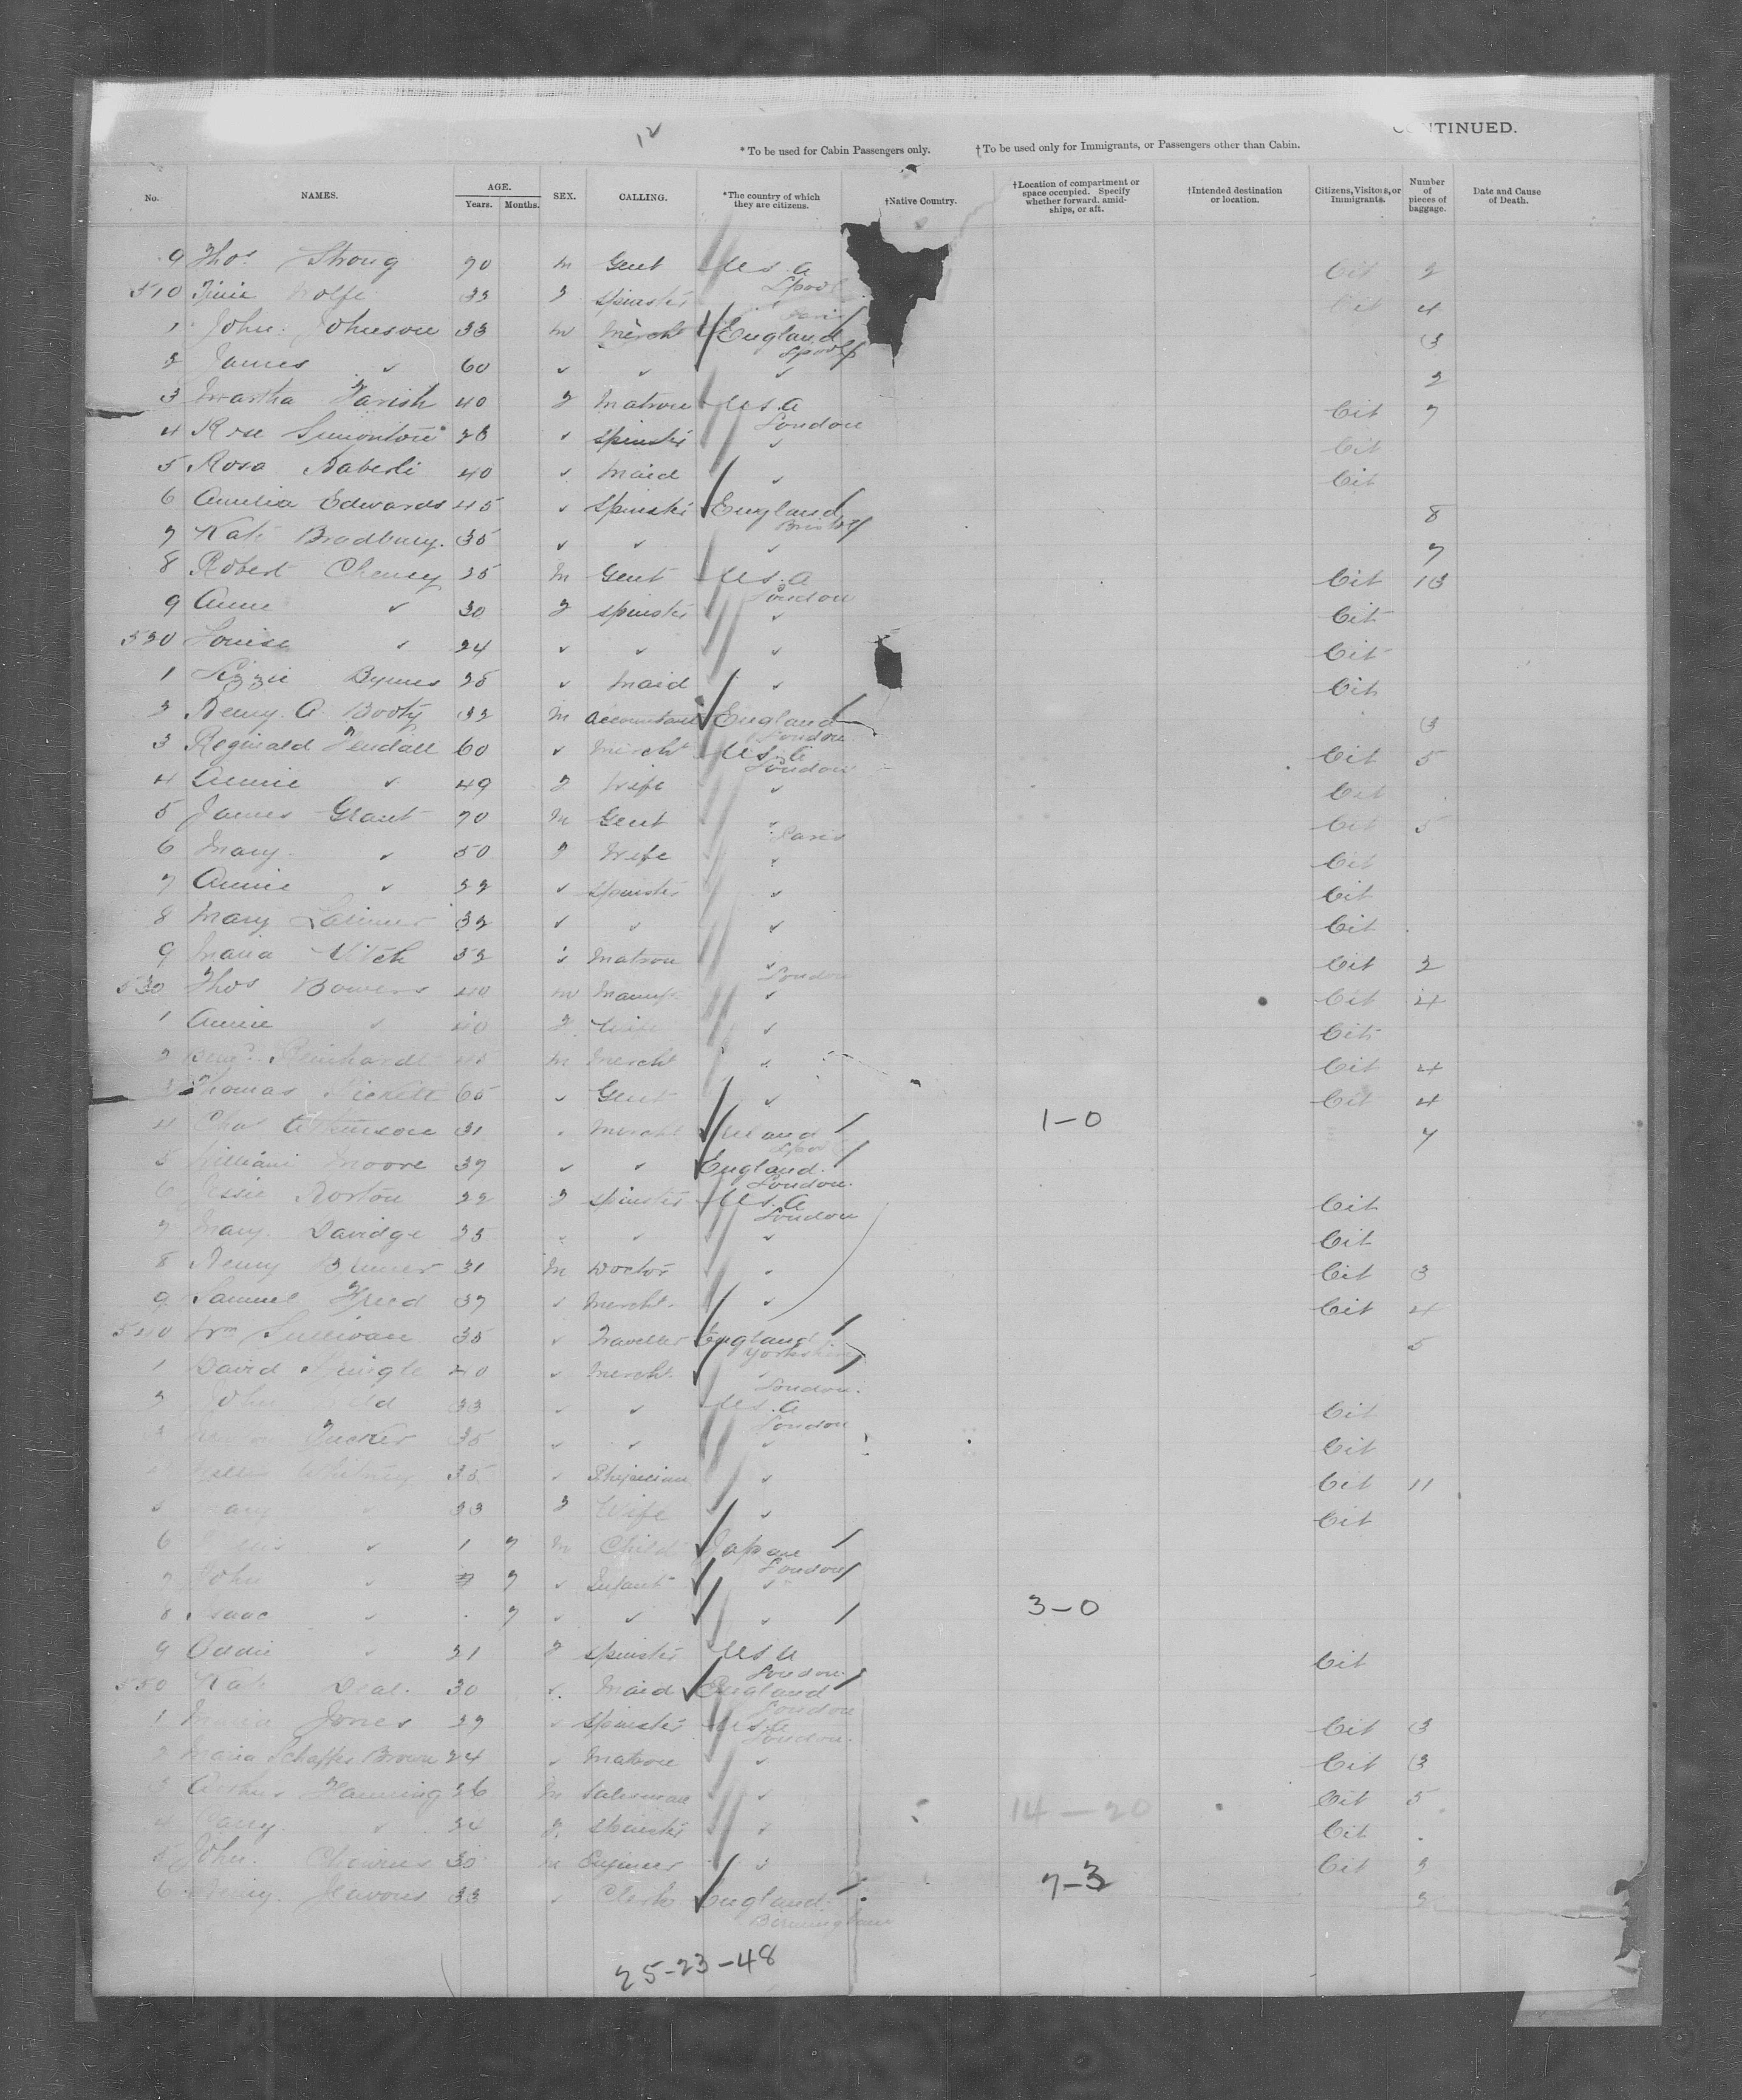 12
CONTINUED.
* To be used for Cabin Passengers only. † To be used only for Immigrants, or Passengers other than Cabin.
No. NAMES. AGE. Years. Months. SEX. CALLING. *The country of which they are citizens. †Native Country. †Location of compartment or space occupied. Specify whether forward, amidships, or aft. †Intended destination or location. Citizens, Visitors, or Immigrants. Number of pieces of baggage. Date and Cause of Death.
9 Thos Strong 70 m Gent U.S.A Lpool Cit 2
510 Wolfe 33 f Spinster Paris Cit 4
1 John Johnson 33 m Mercht England Lpool 3
2 James " 60 " " " 2
3 Martha Parish 40 f Matron U.S.A London Cit 7
4 Rose 26 " Spinster " Cit
5 Rosa 40 " Maid " Cit
6 Amelia Edwards 45 " Spinster England 8
7 Kate Bradbury. 35 " " " 7
8 Robert Cheney 35 m Gent U.S.A London Cit 13
9 Anne " 30 f Spinster " Cit
520 Louisa " 24 " " " Cit
1 Lizzie Byrnes 25 " Maid " Cit
2 Henry A Booty 32 m Accountant England London 3
3 Reginald 60 " Mercht U.S.A London Cit 5
4 Annie " 49 f Wife " Cit
5 James Grant 70 m Gent " Paris Cit 5
6 Mary " 50 f Wife " Cit
7 Annie " 22 " Spinster " Cit
8 Mary Larimer 32 " " " Cit
9 Maria 52 " Matron " London Cit 2
530 Thos Bowers 40 m " Cit 4
1 Annie " 40 f Wife " Cit
2 Reinhardt 45 m Mercht " Cit 4
3 Thomas Pickett 65 " Gent " Cit 4
4 Chas Atkinson 31 " Mercht Ireland Lpool 1-0 7
5 William Moore 37 " " England London.
6 Jessie Norton 22 f Spinster U.S.A London Cit
7 Mary Davidge 25 " " " Cit
8 Henry 31 m Doctor " Cit 3
9 Samuel Freed 37 " Mercht. " Cit 4
540 Wm Sullivan 35 " Traveller England Yorkshire 5
1 David Pringle 40 " Mercht " London.
2 John 33 " " U.S.A London Cit
3 Tucker 35 " " " Cit
4 Whitney 35 " Physician " Cit 11
5 Mary " 33 f Wife " Cit
6 " 1 7 m Child Japan London
7 John " 7 " Infant "
8 Isaac " 7 " " " 3-0
9 Addie " 21 f Spinster U.S.A London. Cit
550 Kate 30 " Maid England London
1 Maria Jones 29 " Spinster U.S.A London. Cit 3
2 Maria Brown 24 " Matron " Cit 3
3 Arthur Fanning 26 m Salesman " 14-20 Cit 5
4 " 24 f Spinster " Cit
5 John 30 m Engineer " Cit 2
6 Henry Jeavons 33 " Clerk England Birmingham 7-3 2
25-23-48